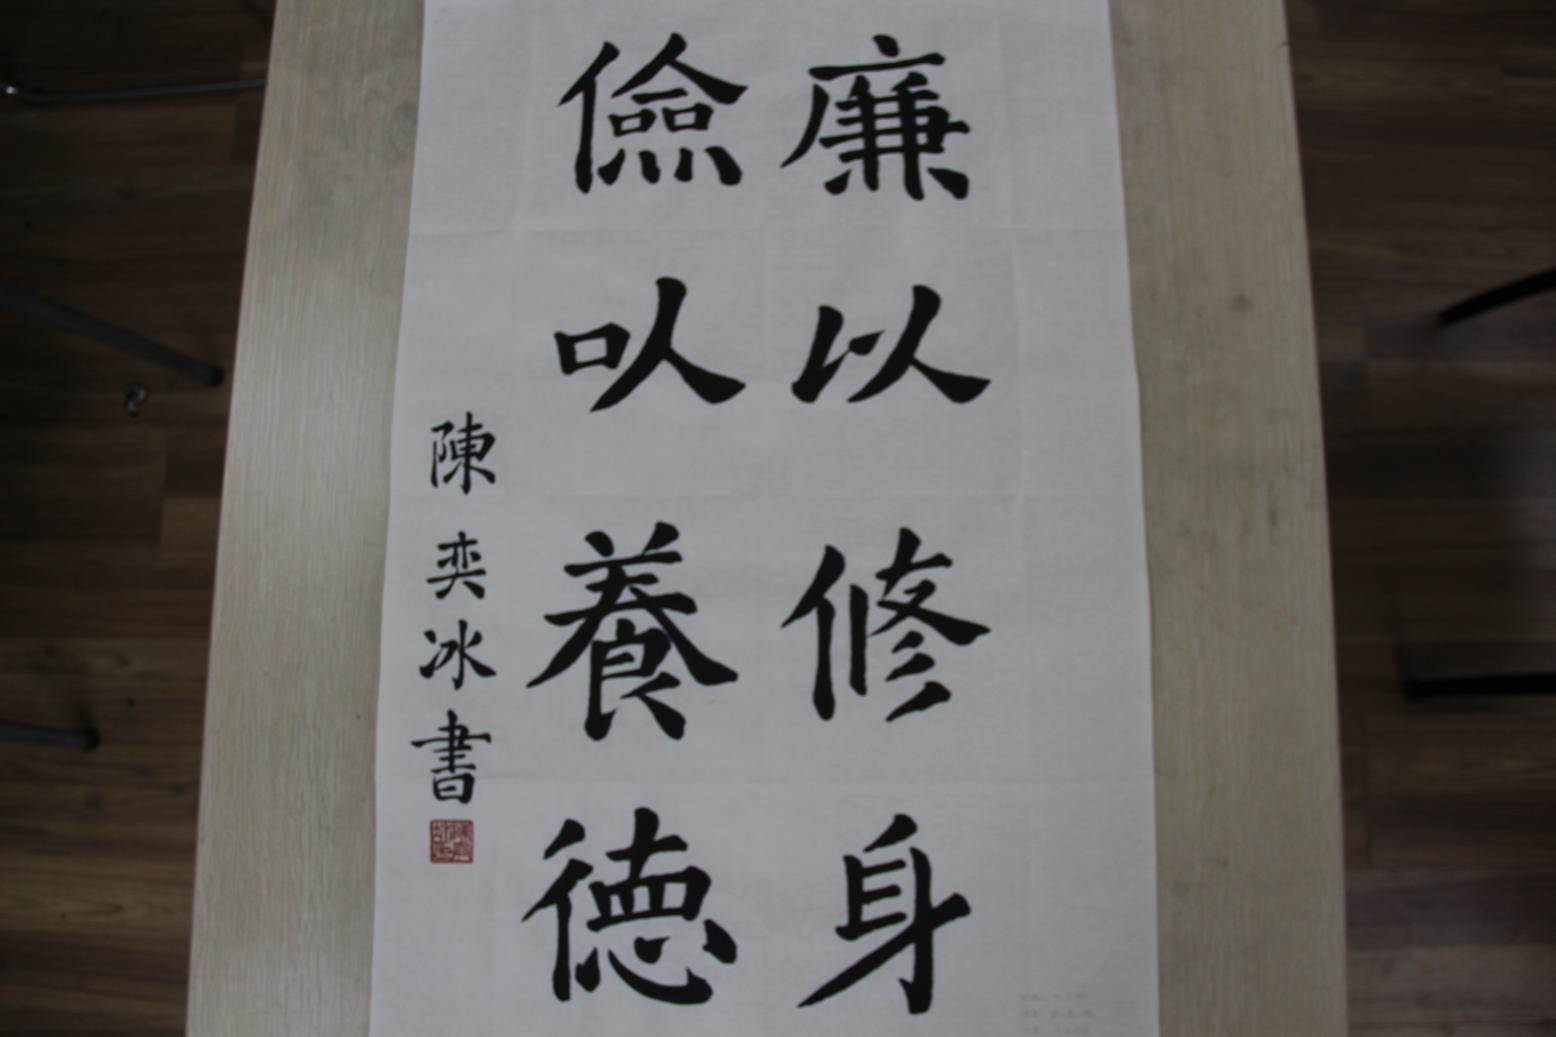 廉以修身
儉㕥養德
陳奕冰書